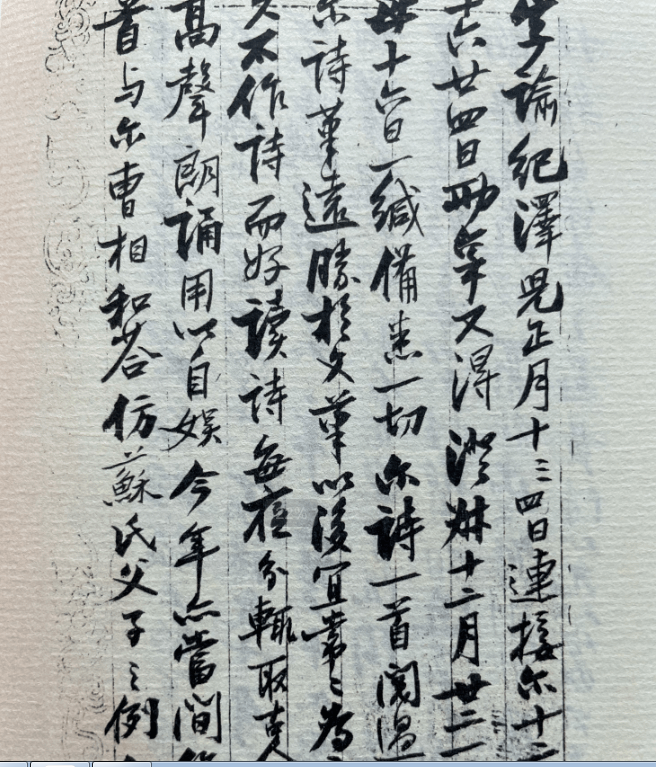 字諭紀澤兒正月十三四日連接尔十二
十六廿四日兩稟又得澄叔十二月廿二一
母十六日一緘備悉一切尔詩一首閱過
尔詩筆遠勝於文筆以後宜常〻為
久不作詩而好讀詩每夜分輒取古人
高聲朗誦用以自娛今年亦當間作
首与尔曹相和荅仿蘇氏父子之例